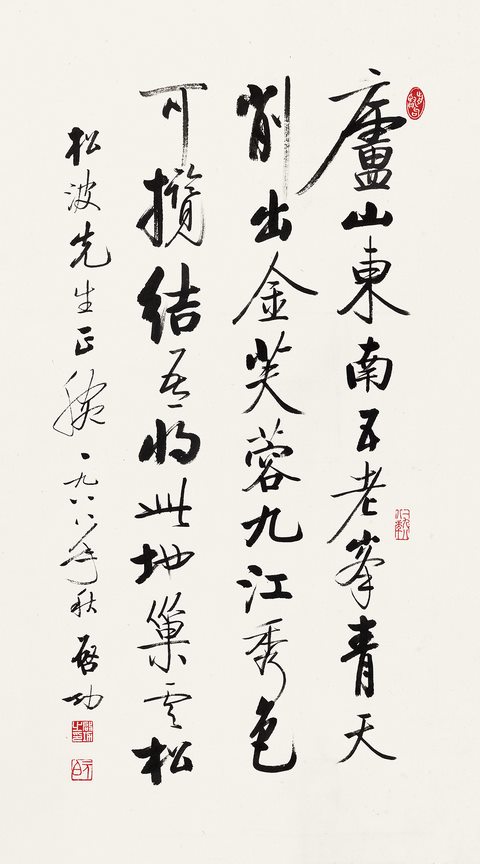 廬山東南五老峯青天
削出金芙蓉九江秀色
可攬結吾将此地巢雲松
松波先生正腕一九八八年秋啓功
元白